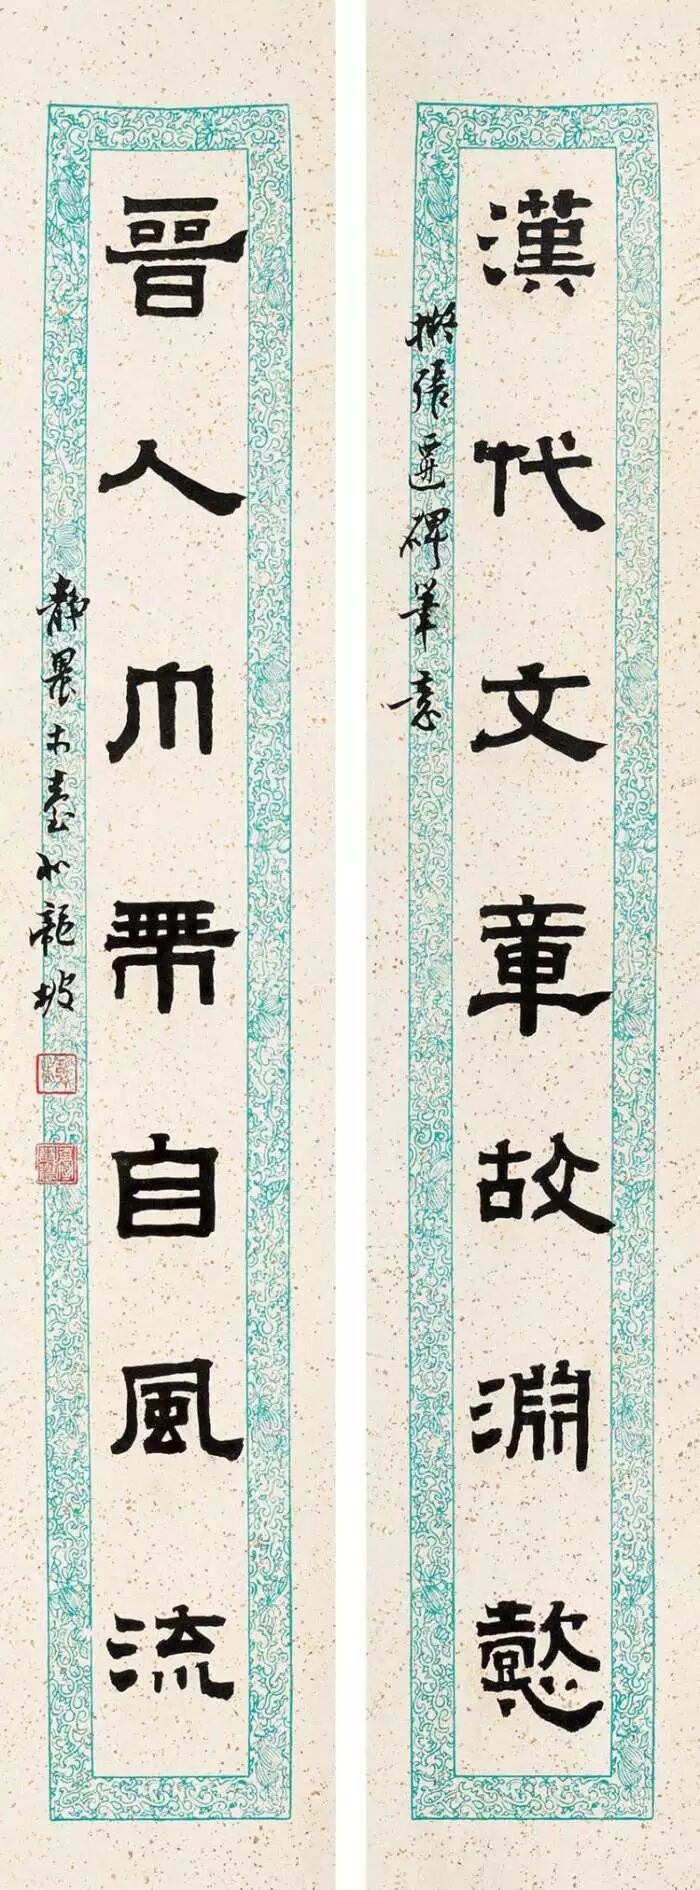 漢代文章故淵懿
擬張遷碑筆意
晉人巾帶自風流
靜農於臺北龍坡